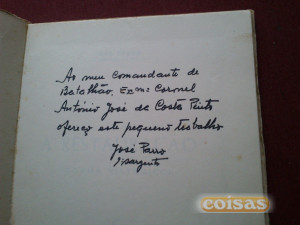 Ao meu Comandante de
Batalhão, Exmº Coronel
António José da Costa Pinto
ofereço este pequeno trabalho
José Parro
sargento
coisas